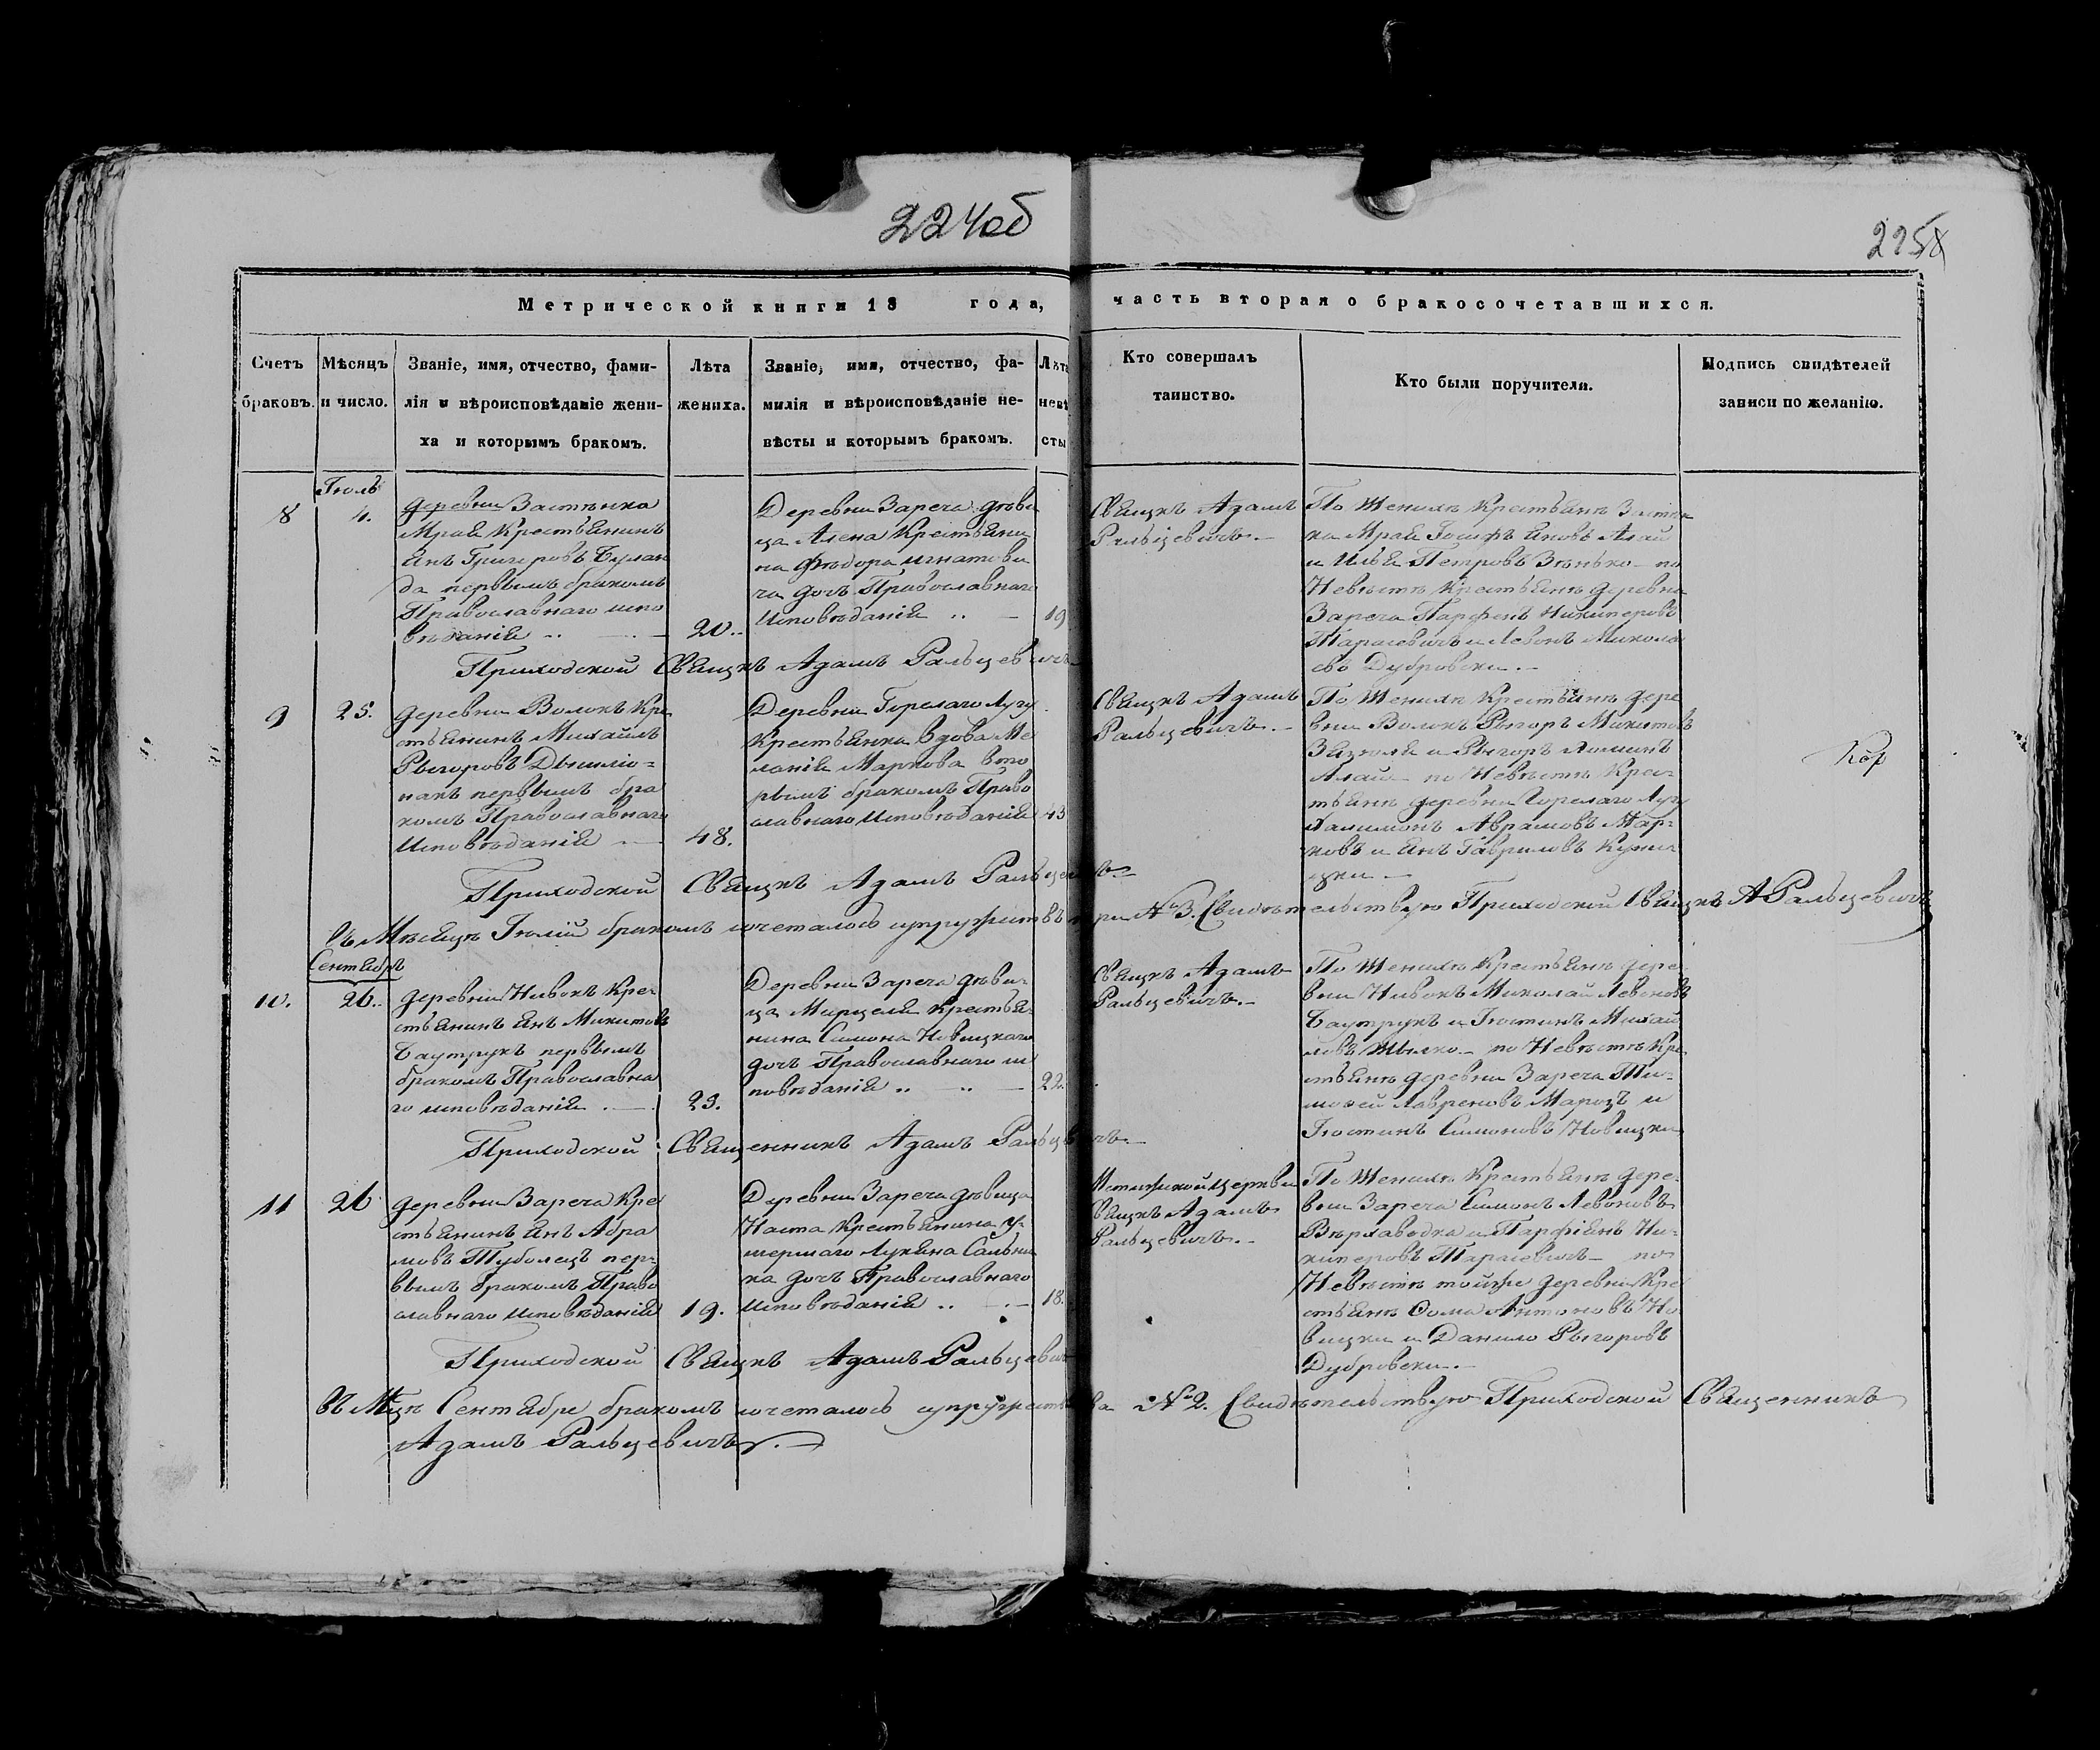 224об
225
Метрической книги 18 года,
часть вторая о бракосочетавшихся.
Счетъ браковъ.
Мѣсяцъ и число.
Званіе, имя, отчество, фами-
лія и вѣроисповѣданіе жени-
ха и которымъ бракомъ.
Лѣта
жениха.
Званіе, имя, отчество, фа-
милія и вѣроисповѣданіе не-
вѣсты и которымъ бракомъ.
Лѣта
невѣ
сты
Кто совершалъ
таинство.
Кто были поручители.
Подпись свидѣтелей
записи по желанію.
Іюль
8
4.
деревни Застѣнка
Мрая Крестьянинъ
Янъ Григоровъ
да первымъ бракомъ
Православнаго испо
вѣданія
20.
Деревни Зареча дѣви
ца Алена Крестьяни
на Ѳѣдора Игнатови
ча дочь Православнаго
Исповѣданія
19
Свящкъ Адамъ
Ральцевичъ.
По Женихѣ Крестьянѣ Застѣн
ка Мрая Іосифъ Яновъ Алай
и Илья Петровъ Зѣнько по
Невѣстѣ Крестьянѣ деревни
Зареча Парфенъ Никиперовъ
Тарасевичъ и Левонъ Микола
евъ Дубровски.
Приходской Свящкъ Адамъ Ральцевичъ
9
25.
деревни Волокъ Кре
стьянинъ Михайлъ
Рыгоровъ
накъ первымъ бра
комъ Православнаго
Исповѣданія
48.
Деревни Горелаго Лугу
Крестьянка Вдова Ме
ланія Маркова вто
рымъ бракомъ Право
славнаго Исповѣданія
43
Свящкъ Адамъ
Ральцевичъ.
По Женихѣ Крестьянѣ дере
вни Волокъ Рыгоръ Микитовъ
и Рыгоръ
Алай по Невѣстѣ Крес-
тьянѣ деревни Горелаго Лугу
Халимонъ Аврамовъ Мар-
ковъ и Янъ Гавриловъ Куни
цки.
Приходской Свящкъ Адамъ Ральцевичъ
Въ Мѣсяцѣ Іюліи бракомъ сочеталось супружествъ три № 3. Свидѣтельствую Приходской Свящкъ А Ральцевичъ
Сентябрь
10.
26.
деревни Нивокъ Кре-
стьянинъ Янъ Микитовъ
Баутрукъ первымъ
бракомъ Православна
го исповѣданія
23.
Деревни Зареча дѣви-
ца Марцеля Крестья-
нина Симона Новицкаго
дочь Православнаго ис
повѣданія
22.
Свящкъ Адамъ
Ральцевичъ.
По Женихѣ Крестьянѣ дере
вни Нивокъ Миколай Левоновъ
Баутрукъ и Іюстинъ Михай
ловъ по Невѣстѣ Кре
стьянѣ деревни Зареча Ти-
мохей Лавреновъ Марозъ и
Іюстинъ Симоновъ Новицки
Приходской Священникъ Адамъ Ральцевичъ
11
26
деревни Зареча Кре
стьянинъ Янъ Абра
мовъ Туболецъ пер-
вымъ бракомъ Право
славнаго Исповѣданія
19.
Деревни Зареча дѣвица
Наста Крестьянина у-
мершаго Лукьяна Сальни
ка дочь Православнаго
Исповѣданія
18.
церкви
Свящкъ Адамъ
Ральцевичъ.
По Женихѣ Крестьянѣ дере-
вни Зареча Симонъ Левоновъ
Вѣрхаводка и Парфіянъ Ни-
киперовъ Тарасевичъ по
Невѣстѣ тойже деревни Кре
стьянѣ Ѳома Антоновъ Но
вицки и Данило Рыгоровъ
Дубровски.
Приходской Свящкъ Адамъ Ральцевичъ
Въ Мцѣ Сентябрѣ бракомъ сочеталось супружества № 2. Свидѣтельствую Приходской Священникъ
Адамъ Ральцевичъ.